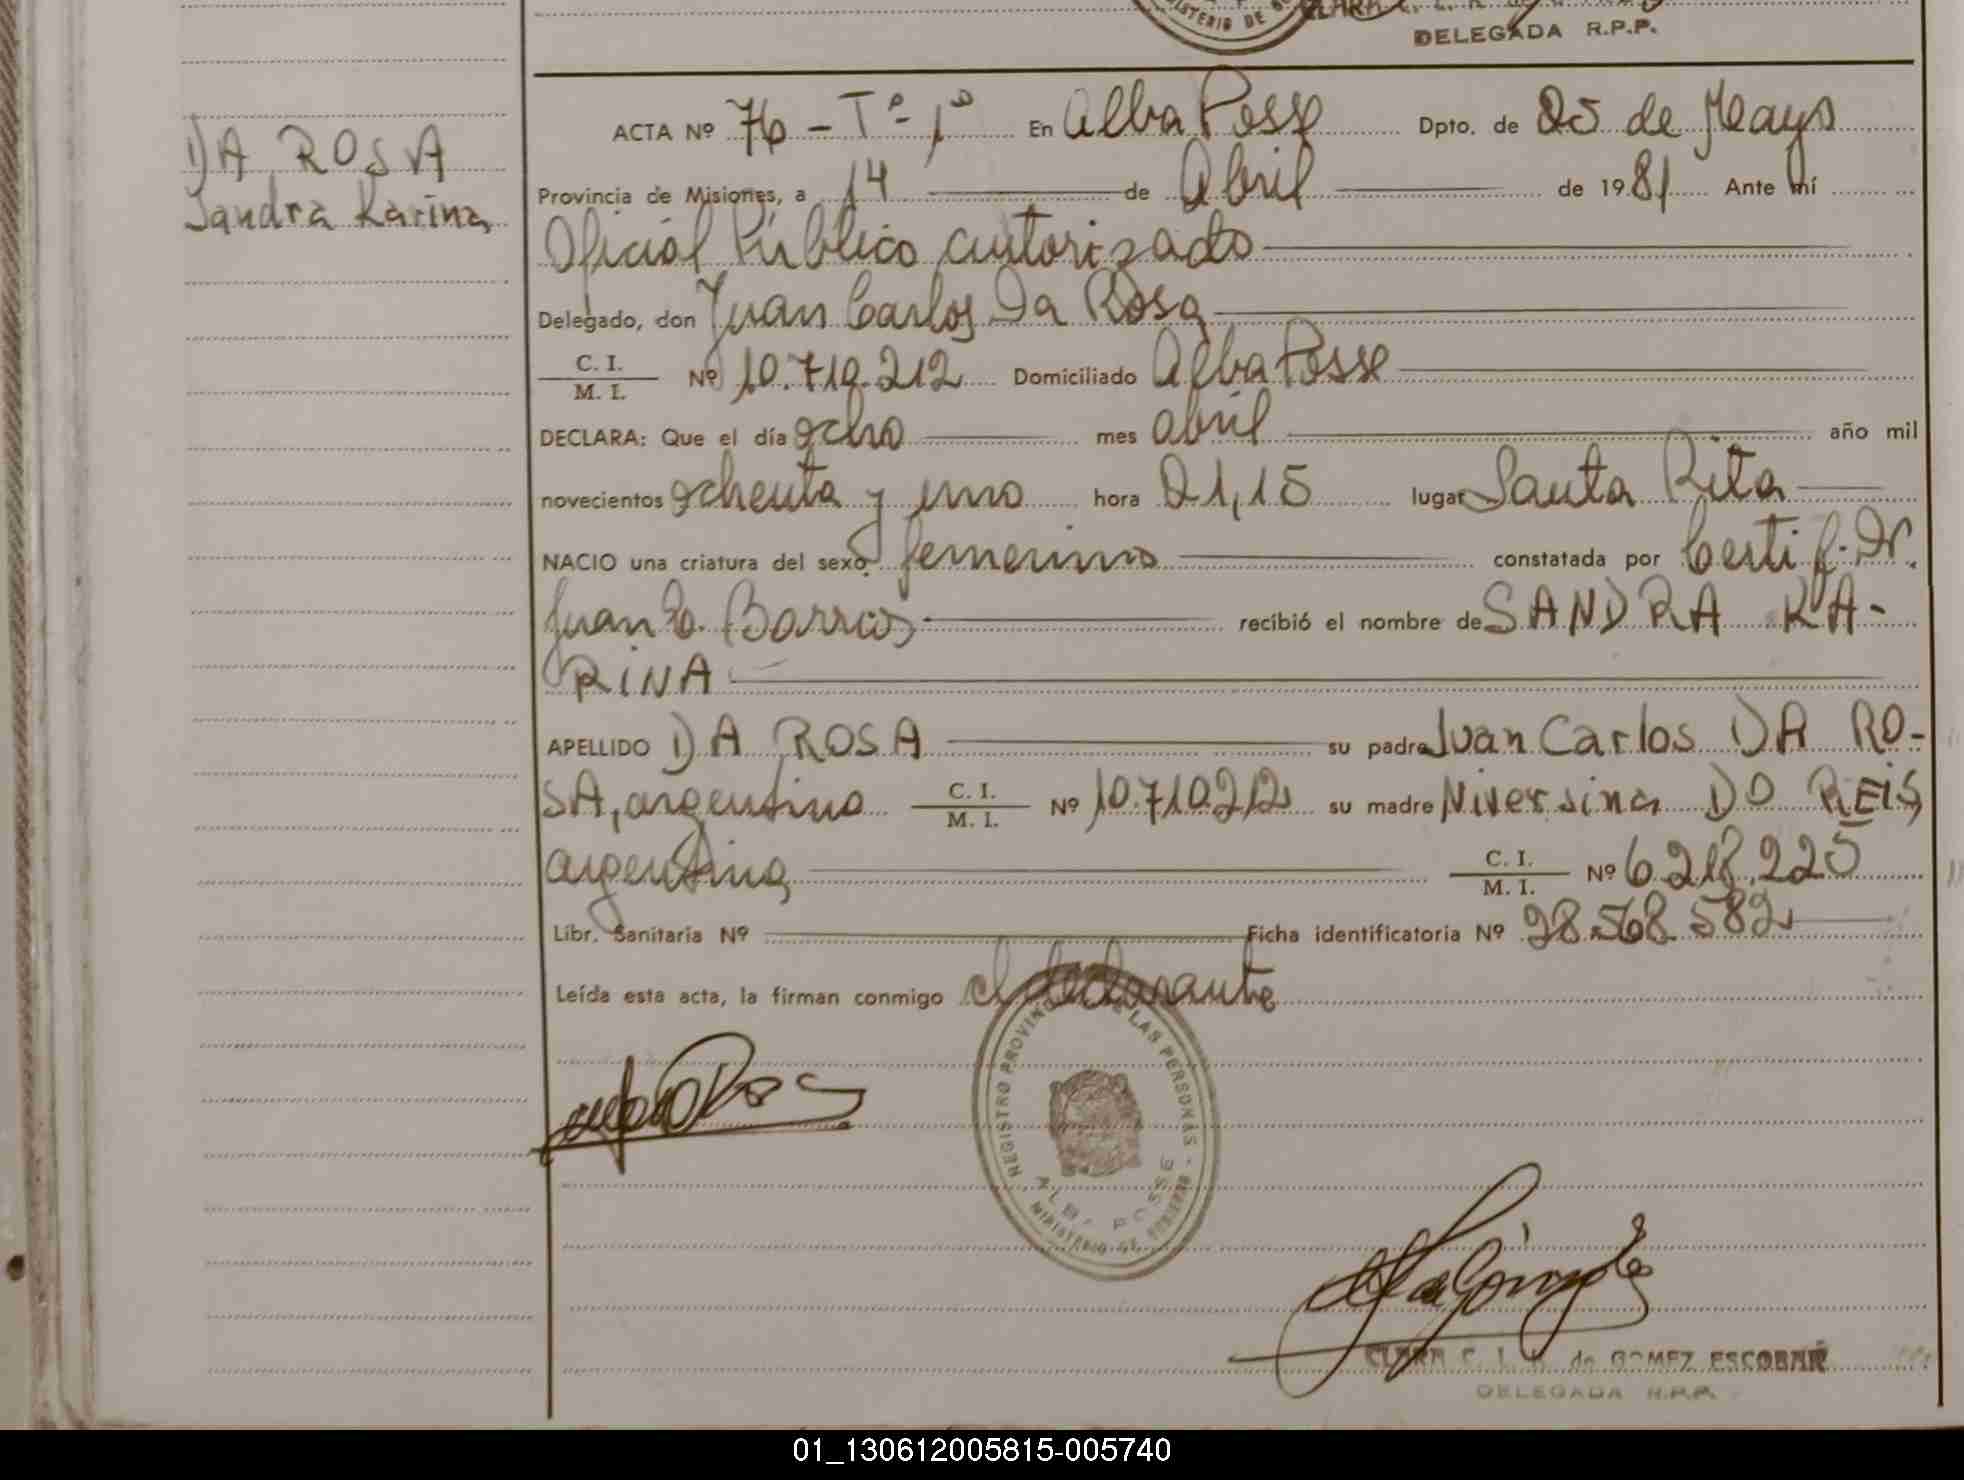 MINISTERIO DE
DELEGADA R.P.P.
DA ROSA
Sandra Karina
ACTA Nº 76 - Tº - 1º En Alba Posse Dpto. de 25 de Mayo
Provincia de Misiones, a 14 de Abril de 1981 Ante mí
Oficial Público autorizado
Delegado, don Juan Carlos Da Rosa
C. I.
M. I.
Nº 10.710.212 Domiciliado Alba Posse
DECLARA: Que el día ocho mes abril año mil
novecientos ochenta y uno hora 21,15 lugar Santa Rita
NACIO una criatura del sexo femenino constatada por Certif. Dr.
Juan E. Barrios recibió el nombre de SANDRA KA-
RINA
APELLIDO DA ROSA su padre Juan Carlos DA RO-
SA, argentino C. I. M. I. Nº 10.710.212 su madre Niversina DO REIS,
argentina C. I. M. I. Nº 6.218.225
Libr. Sanitaria Nº Ficha identificatoria Nº 28.568.582
Leída esta acta, la firman conmigo el declarante
REGISTRO PROVINCIAL DE LAS PERSONAS - MINISTERIO DE GOBIERNO
ALBA POSSE
CLARA C. L. de GOMEZ ESCOBAR
DELEGADA R.P.P.
01_130612005815-005740